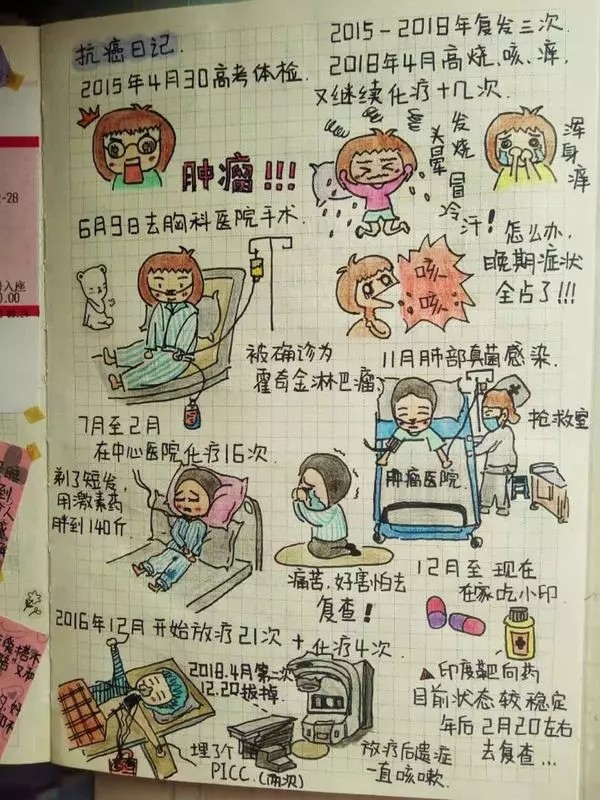 抗癌日记.
2015年4月30高考体检.
肿瘤!!!
6月9日去胸科医院手术.
被确诊为
霍奇金淋巴瘤
7月至2月
在中心医院化疗16次.
剃了短发,
用激素药
胖到140斤.
痛苦,好害怕去
复查!
2016年12月开始放疗21次+化疗4次.
2018.4月第二次
12.20拔掉.
埋了个
PICC.(两次)
放疗后遗症
一直咳嗽.
2015-2018年复发三次.
2018年4月高烧、咳、痒,
又继续化疗十几次.
头晕
发烧
冒冷汗!
浑身痒
怎么办,
晚期症状
全占了!!!
咳!
咳!
11月肺部真菌感染.
抢救室
肿瘤医院
12月至现在
在家吃小印.
▲印度靶向药
目前状态较稳定
年后2月20左右
去复查...
2-28
入座
.00